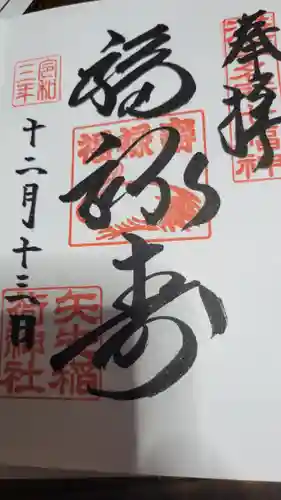 奉拝
福禄寿
令和
三年
十二月十三日
矢先稲
荷神社